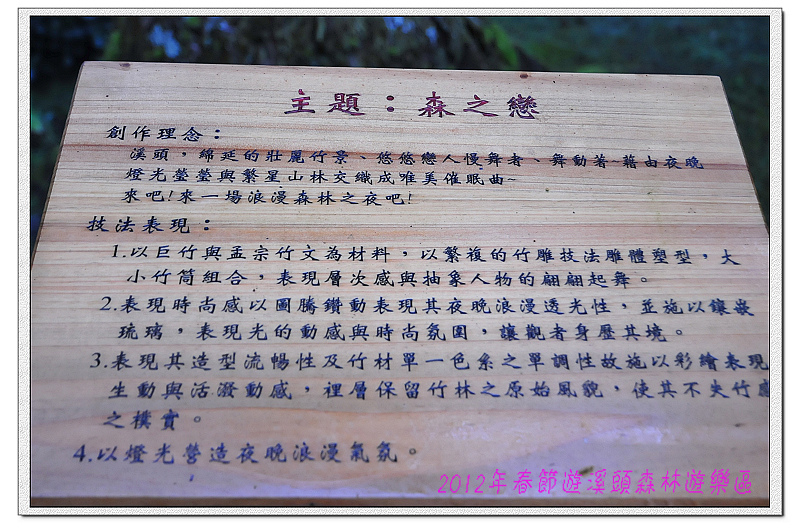 主題：森之戀
創作理念：
溪頭，綿延的壯麗竹景、悠悠戀人慢舞者、舞動著~藉由夜晚
燈光瑩瑩與繁星山林交織成唯美催眠曲~
來吧!來一場浪漫森林之夜吧!
技法表現：
1.以巨竹與孟宗竹文為材料，以繁複的竹雕技法雕體塑型，大
小竹筒組合，表現層次感與抽象人物的翩翩起舞。
2.表現時尚感以圖騰鑽動表現其夜晚浪漫透光性，並施以鑲嵌
琉璃，表現光的動感與時尚氛圍，讓觀者身歷其境。
3.表現其造型流暢性及竹材單一色系之單調性故施以彩繪表現
生動與活潑動感，裡層保留竹林之原始風貌，使其不失竹感
之樸實。
4.以燈光營造夜晚浪漫氣氛。
2012年春節遊溪頭森林遊樂區